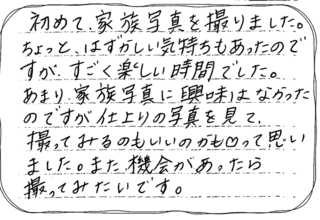 初めて、家族写真を撮りました。
ちょっと、はずかしい気持ちもあったので
すが、すごく楽しい時間でした。
あまり、家族写真に興味はなかった
のですが仕上りの写真を見て、
撮ってみるのもいいのかも♡って思い
ました。また機会があったら
撮ってみたいです。